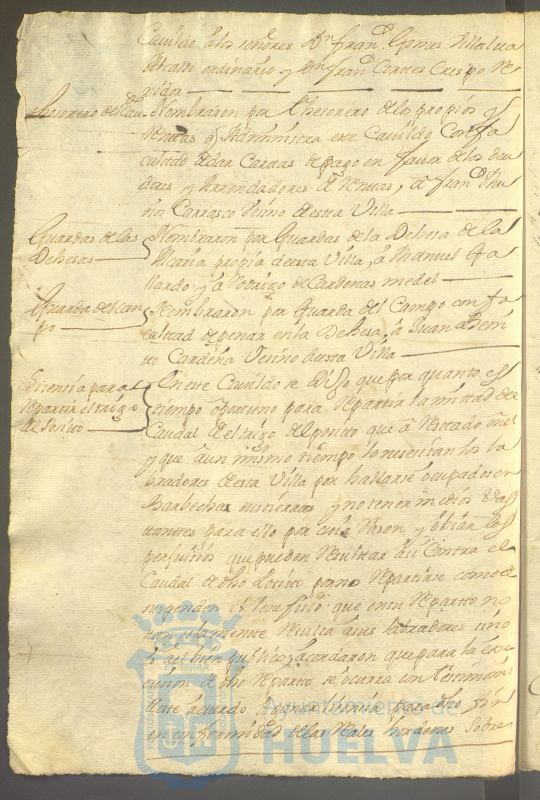 Cavildo a los señores Dn Franco Gomes Villalva
Alcalde ordinario y Dn Franco Cortes Crespo Re
gidor
Thesorero del Cauo Nombraron por Thesorero de los propios y
Rentas q Administra este Cavildo Con fa
cultad de dar Cartas de pago en favor de los deu
dores y Arrendadores de Rentas, a Franco Mu
ños Carrasco Vecino de esta Villa
Guardas de las Dehesas Nombraron por Guardas de la Dehesa de la
Alcaria propia de esta Villa, a Manuel Ga
llardo y a Rodrigo de Cardenas medel
Guarda del cam
po Nombraron por Guarda del Campo con fa
cultad de penar en la Dehesa, a Juan Beni
to Cardeña Vecino de esta Villa
Licencia para
Repartir el trigo
del Posito
En este Cavildo se Dijo que por quanto es
tiempo oportuno para Repartir la mitad del
Caudal del trigo del posito que a Restado
y que a un mismo tiempo lo necesitan los la
bradores de esta Villa por hallarse ocupados en
Barbechar sus tierras y no tener medios bas
tantes para ello por cuia Rason y obiar los
perjuicios que pueden Resultar asi Contra el
Caudal de dho Posito por no Repartirse como de
suspender el beneficio que en su Reparto no
tan solamente Resulta a sus labradores sino
es al bien publico, acordaron que para la exe
cucion de dho Reparto se ocurra con testimonio
de este acuerdo a ganar licencia para dho fin
en conformidad de las Reales hordenes sobre
Ayuntamiento de
HUELVA